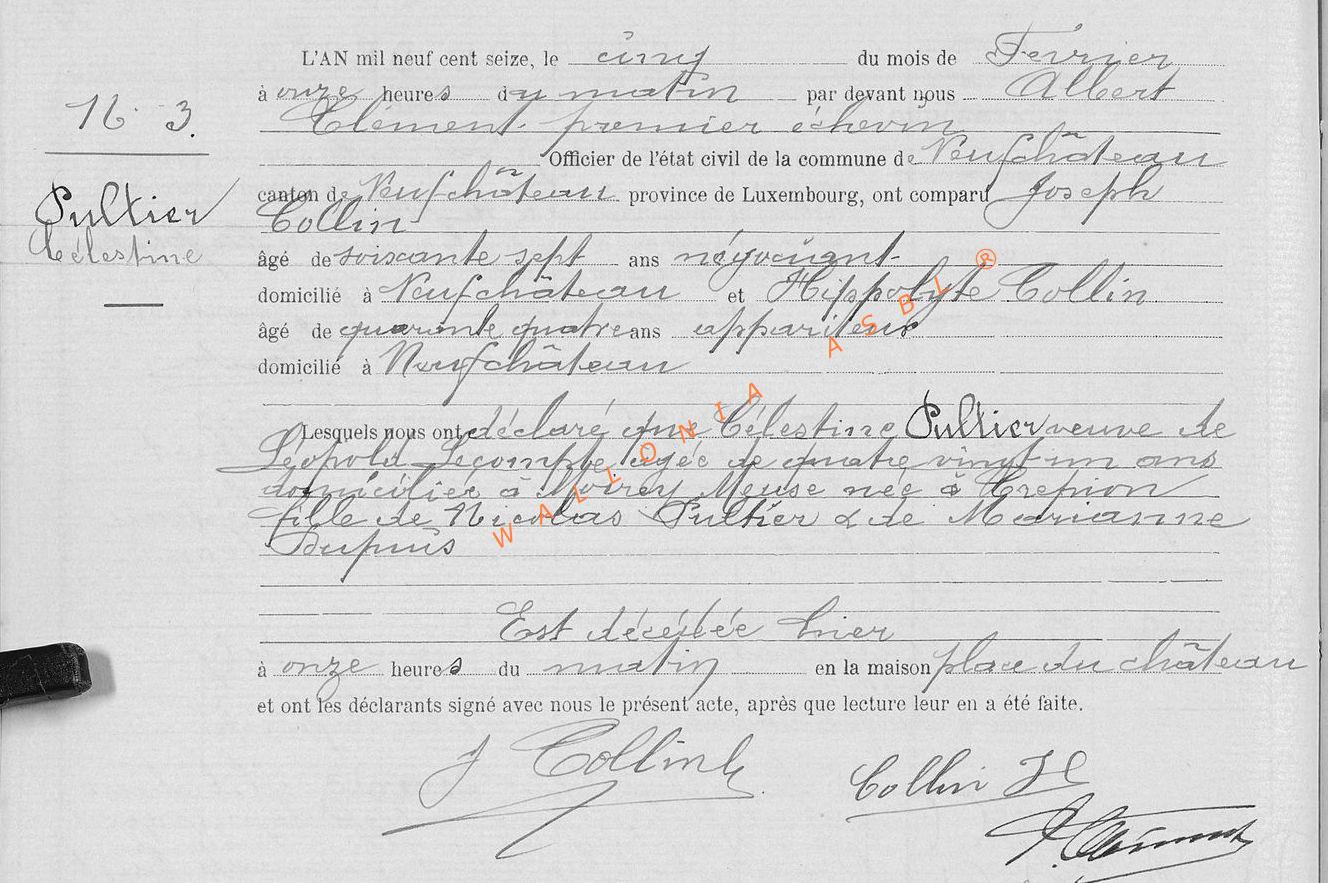 L'AN mil neuf cent seize, le cinq du mois de Février
à onze heures du matin par devant nous Albert
Clément premier échevin
Officier de l'état civil de la commune de Neufchâteau
canton de Neufchâteau province de Luxembourg, ont comparu Joseph
Collin
âgé de soixante sept ans négociant
domicilié à Neufchâteau et Hippolyte Collin
âgé de quarante quatre ans appariteur
domicilié à Neufchâteau
Lesquels nous ont déclaré que Célestine Pultier veuve de
Léopold Lecompte agée de quatre vingt un ans
domiciliée à Moirey Meuse née à Crepion
fille de Nicolas Pultier & de Marianne
Dupuis
Est décédée hier
à onze heures du matin en la maison place du château
et ont les déclarants signé avec nous le présent acte, après que lecture leur en a été faite.
J Collin
Collin H
A. Clément
16 3.
Pultier
Célestine
WALLONIA ASBL ®